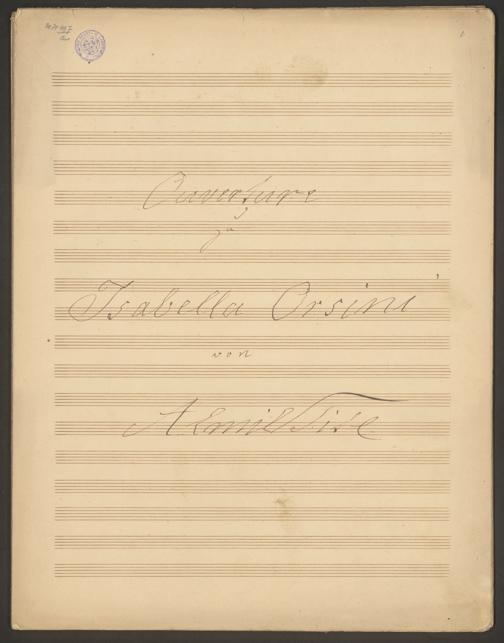 Ouverture
zu
Isabella Orsini
von
A Emil Titl